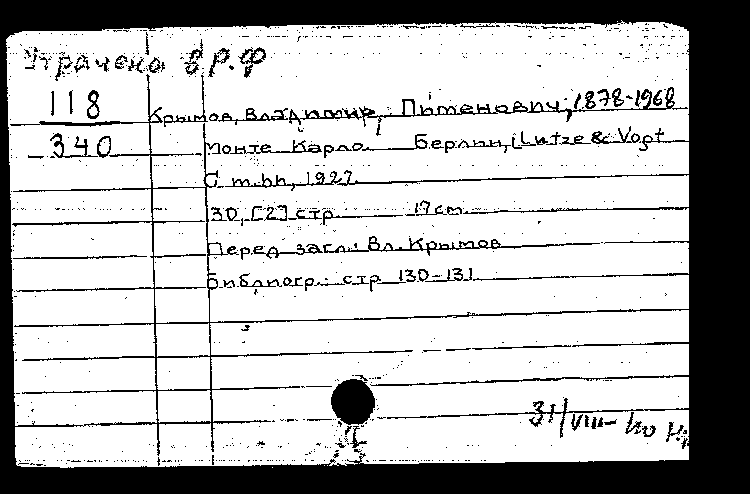 Утрачена в Р.Ф
118
Крымов, Владимир Пименович, 1878-1968
340
Монте Карло. Берлин, Lutze & Vogt
G m.bh, 1927.
130, [2] стр 17 cm.
Перед загл: Вл. Крымов
Библиогр.: стр 130-131
31/VIII-